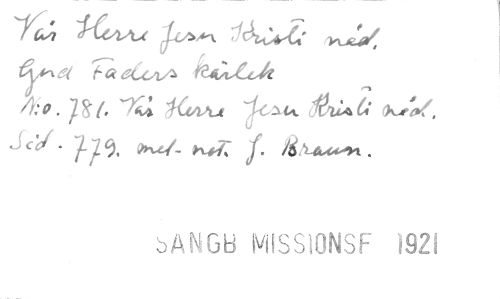 Vår Herre Jesu Kristi nåd.
Gud Faders kärlek
N:o. 781. Vår Herre Jesu Kristi nåd.
Sid. 779. mel-not. J. Braun.
SANGB MISSIONSF 1921